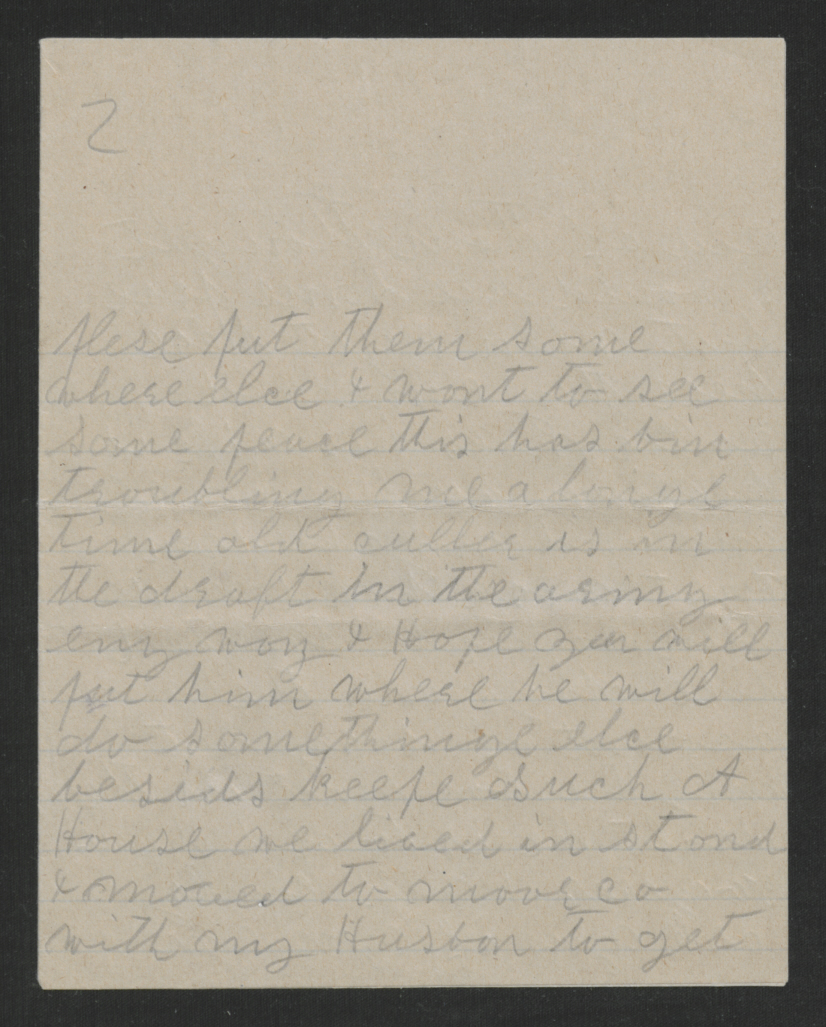 2
plese put them some
where elce & wont to see
some peace this has bin
troubling me a longe
time old culler is in
the draft in the army
eny way & Hope you will
put him where he will
do somethinge elce
besids keepe Such A
House we lived in stond
& moved to moore co
with my Husbon to get